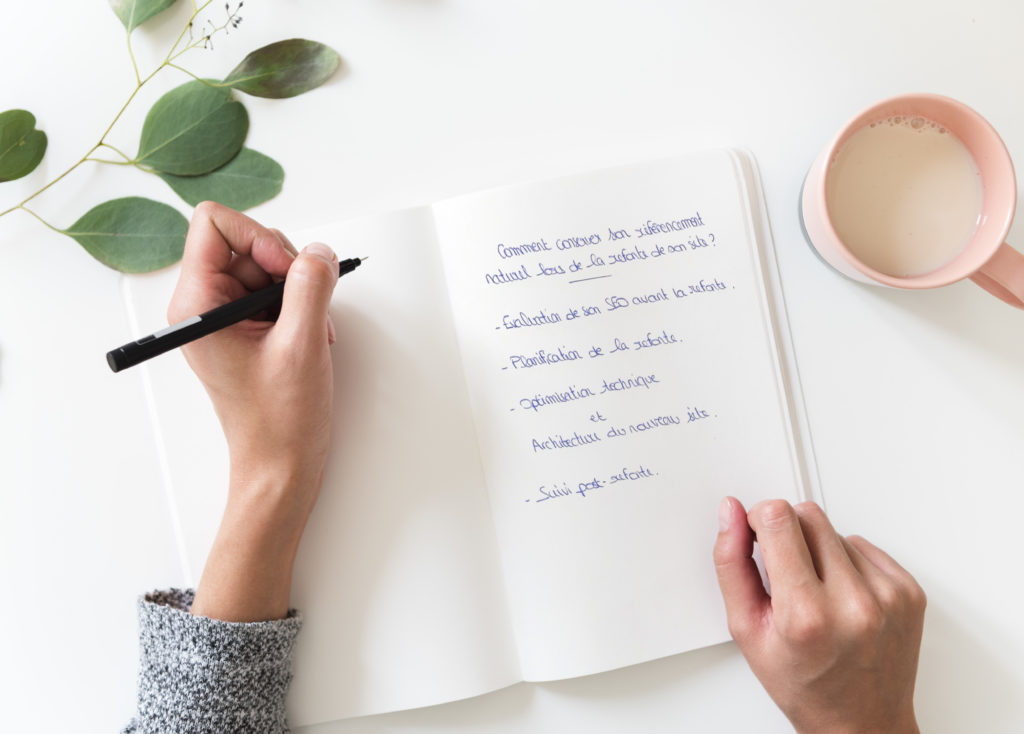 Comment conserver son référencement
naturel lors de la refonte de son site ?
- Evaluation de son SEO avant la refonte.
- Planification de la refonte.
- Optimisation technique
et
Architecture du nouveau site.
- Suivi post-refonte.